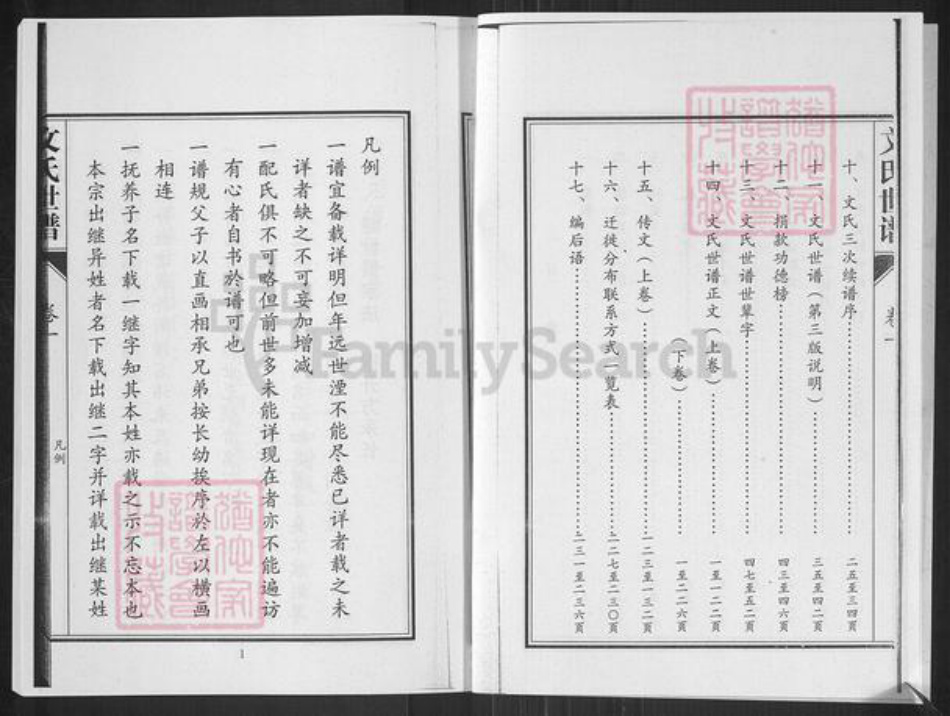 文氏世谱
卷一
十、文氏三次续谱序……二五至三四页
十一、文氏世谱（第三版说明）……三五至四二页
十二、捐款功德榜……四三至四六页
十三、文氏世谱世辈字……四七至五二页
十四、文氏世谱正文（上卷）……一至一二二页
（下卷）……一至二二六页
十五、传文（上卷）……一二三至一三二页
十六、迁徙分布联系方式一览表……二二七至二三〇页
十七、编后语……二三一至二三六页
凡例
一谱宜备载详明但年远世湮不能尽悉已详者载之未
详者缺之不可妄加增减
一配氏俱不可略但前世多未能详现在者亦不能遍访
有心者自书於谱可也
一谱规父子以直画相承兄弟按长幼挨序於左以横画
相连
一抚养子名下载一继字知其本姓亦载之示不忘本也
本宗出继异姓者名下载出继二字并详载出继某姓
文氏世谱
卷一
凡例
1
FamilySearch